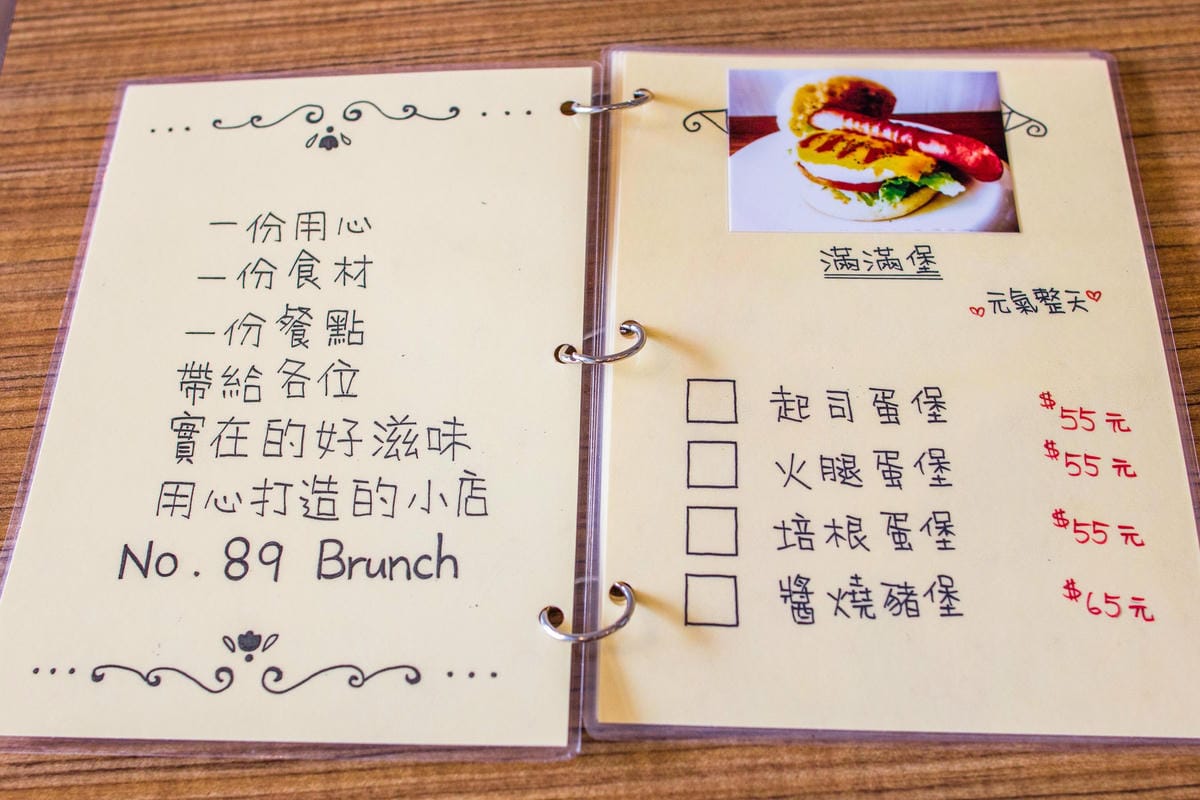 一份用心
一份食材
一份餐點
帶給各位
實在的好滋味
用心打造的小店
No. 89 Brunch
滿滿堡
元氣整天
起司蛋堡 $55元
火腿蛋堡 $55元
培根蛋堡 $55元
醬燒豬堡 $65元